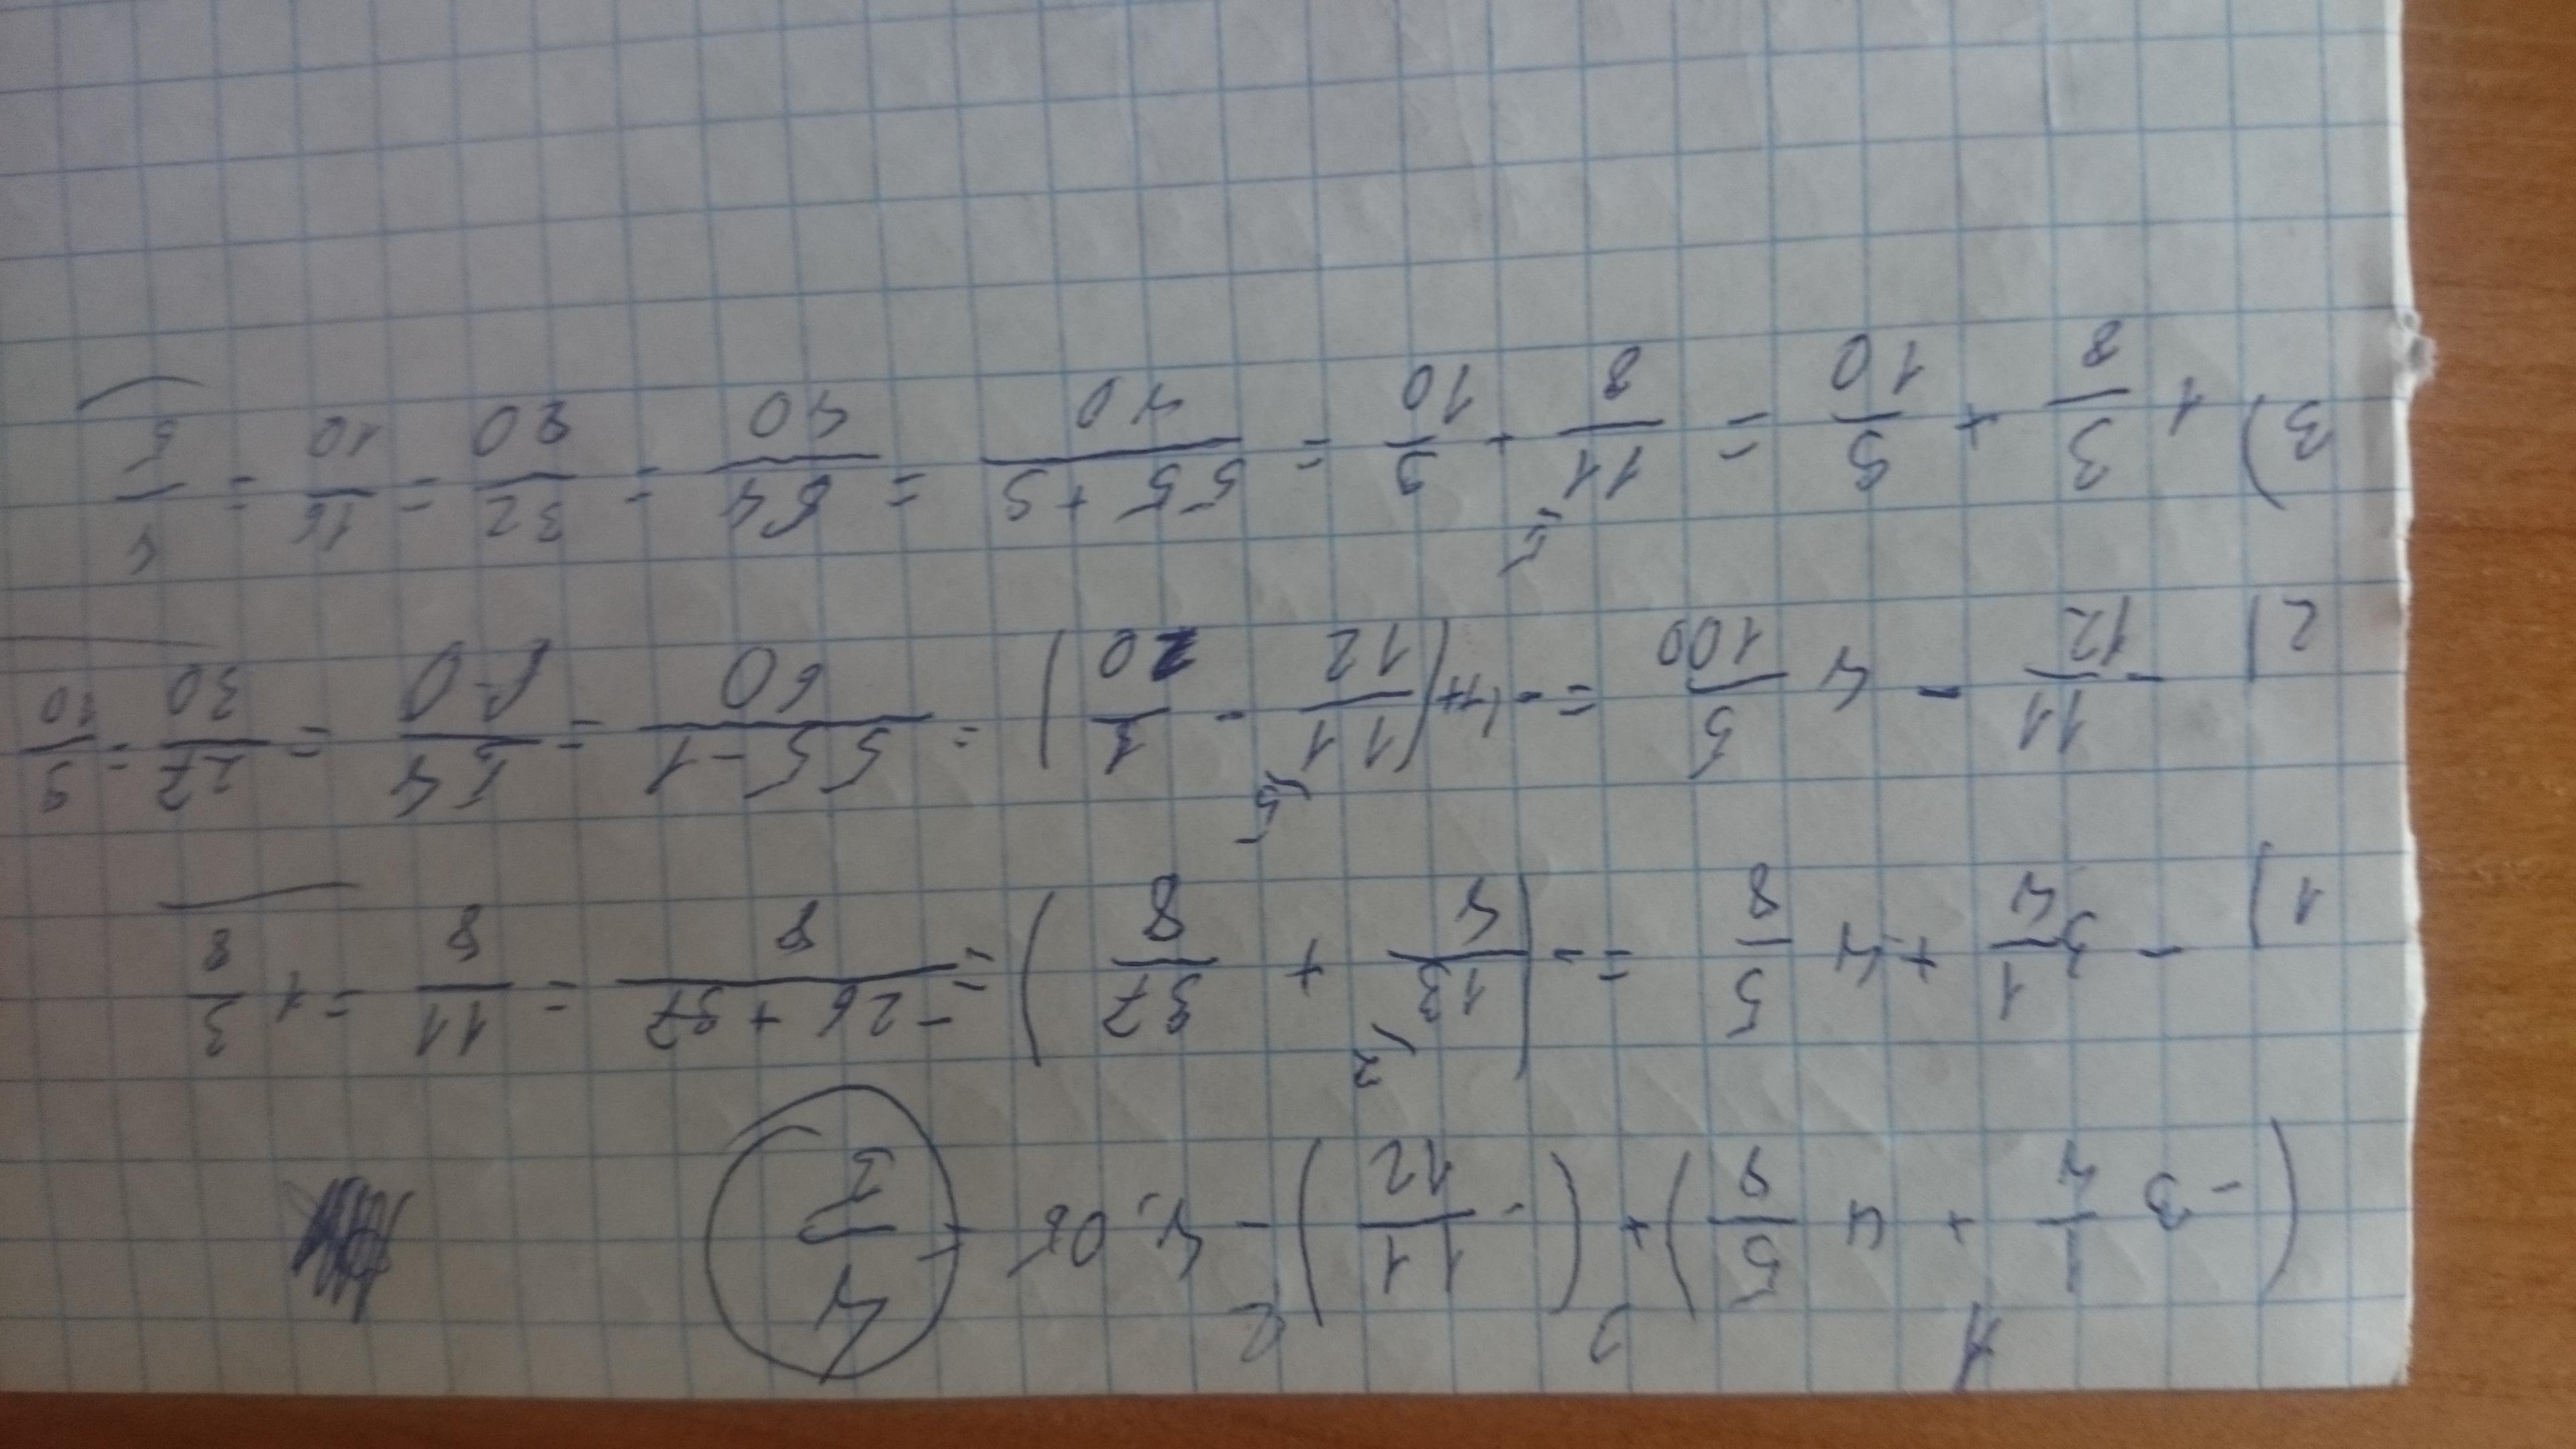 1 3 2
(-3 1/4 + 4 5/8) + (- 11/12) - 4,05 = 4/5
1) - 3 1/4 + 4 5/8 = - (13/4 + 37/8) = (-26 + 37)/8 = 11/8 = 1 3/8
2) - 11/12 - 4 5/100 = -4+(11/12 - 1/20) = (55-1)/60 = 54/60 = 27/30 = 9/10
3) 1 3/8 + 9/10 = 11/8 + 9/10 = (55+9)/40 = 64/40 = 32/20 = 16/10 = 4/5